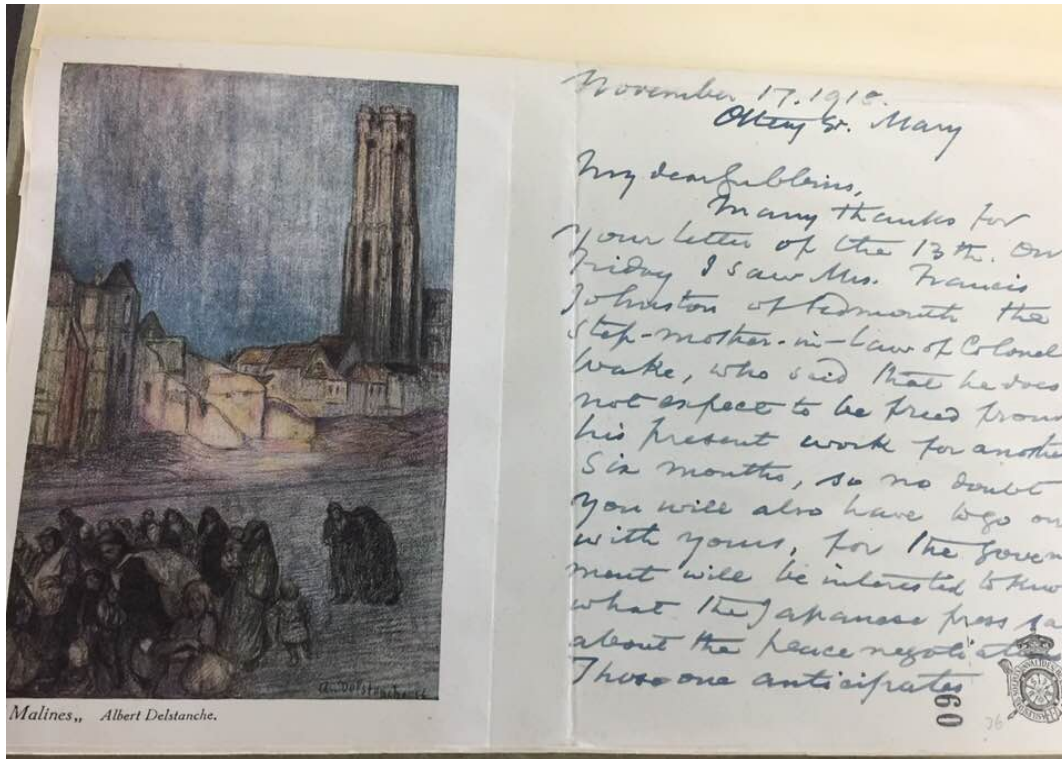 November 17. 1918.
Ottery St. Mary
My dear Gubbins,
Many thanks for
your letter of the 13th. On
Friday I saw Mrs. Francis
Johnston of Sidmouth the
step-mother-in-law of Colonel
Wake, who said that he does
not expect to be freed from
his present work for another
six months, so no doubt
you will also have to go on
with yours, for the Govern
ment will be interested to know
what the Japanese press sa
about the peace negotiat
Those one anticipates
60
36
Malines„ Albert Delstanche.